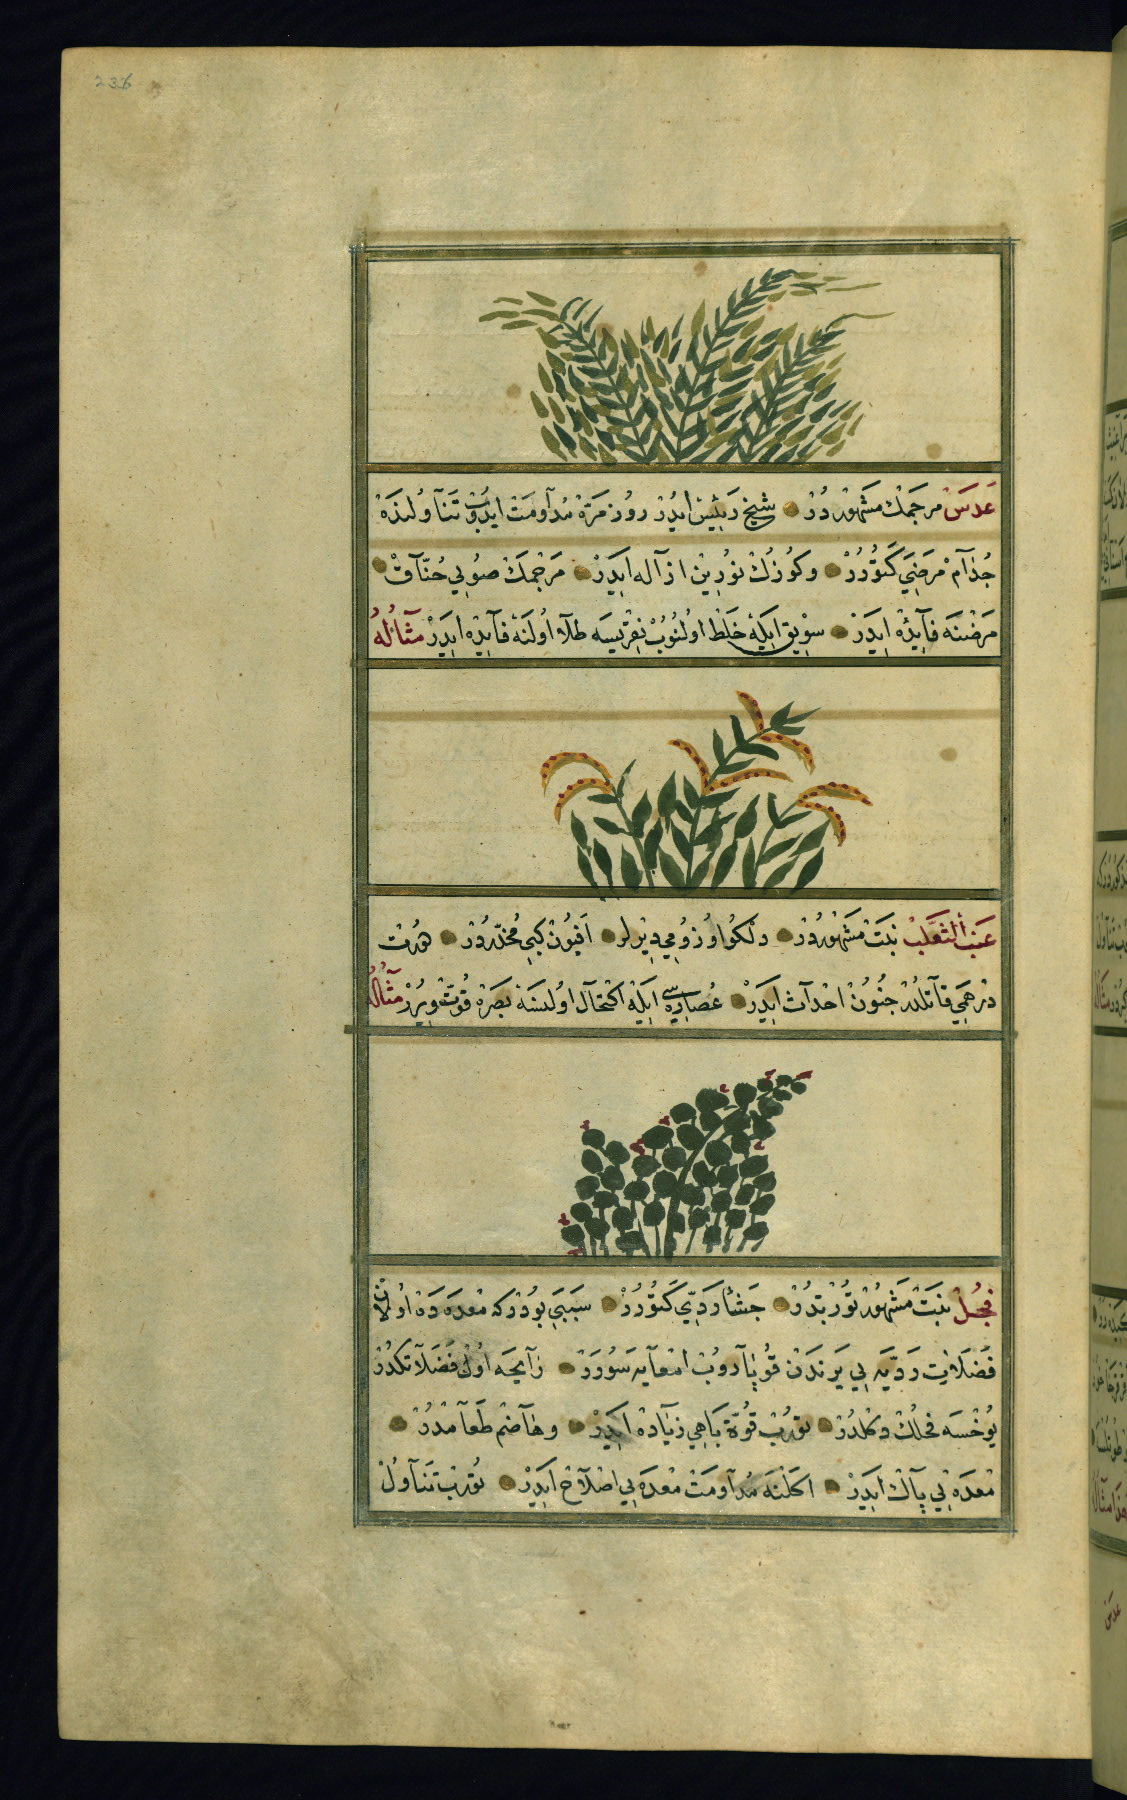 236
عَدَسْ مرجمك مَشْهُورْ دُرْ شيخ رَئِيسْ ايدُرْ روُز مَرَّة مُدَاوَمَتْ ايدُبْ تَنَاوُلندَة
جُذَامْ مَرَضِيَ كَتُوُرُرْ وكوُزُكْ نوُرِينْ ازَاله ايدَرْ مَرجمكْ صُويي خُنَّاقْ
مَرَضنَه فَايِدَهْ ايدَرْ سويق ايلَه خَلْط اولنُوبْ نِقريسَه طلا اوُلنَه فَايدَه ايدَرْ مثَالُهُ
عنب الثَّعْلَبْ نبَتْ مَشْهُورُدُرْ دلكو اوُزوُمي ديرلر افيُونْ كبي مُخدّردُرْ هر
درهمي قاتلدُر جنُونْ احْدَاث ايدَرْ عُصارَه سي ايلَه اكتحال اولنسَه بَصَره قُوّتْ ويرُرْ مثَالُهُ
فجُلْ نبَتْ مَشْهُورْ تُورْبدُرْ جشَأ رَدّي كَتُوُرُرْ سَبَبي بُودُر كه معدَه دَه اوُلانْ
فَضَلات رَديَّه يي يرندَنْ قُوپاروُبْ امعَايه سَورَرْ رَايحَه اوُلْ فَضَلاتكدُرْ
يُوخسَه فجلُكْ دكلدُرْ تورُبْ قُوّة بَاهي زيَادَه ايدَرْ وهَاضم طعَامدُرْ
معدَه يي پَاك ايدَرْ اكلنَه مُدَاوَمَتْ معدَه يي اصْلَاح ايدَرْ تورُبْ تَنَاوُلْ